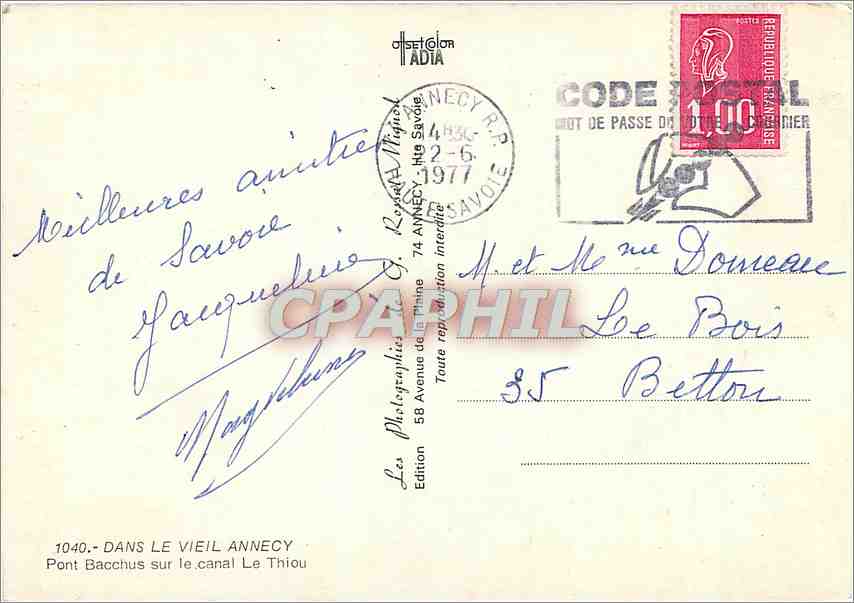 offset color
ADIA
ANNECY R.P.
14H30
22-6
1977
HTE SAVOIE
CODE POSTAL
MOT DE PASSE DE VOTRE COURRIER
POSTES
REPUBLIQUE FRANÇAISE
1,00
Meilleures amitiés
de Savoie
Jacqueline
M. et Mme Domeau
Le Bois
35 Betton
Les Photographies de G. Rossat-Mignod
Edition 58 Avenue de la Plaine 74 ANNECY - Hte Savoie
Toute reproduction interdite
CPAPHIL
1040.- DANS LE VIEIL ANNECY
Pont Bacchus sur le canal Le Thiou